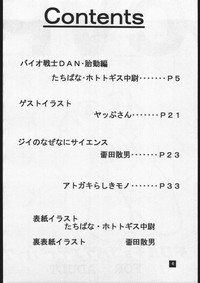 Contents
バイオ戦士DAN・胎動編
たちばな・ホトトギス中尉・・・・・・・P5
ゲストイラスト
ヤッぷさん・・・・・・・P21
ジイのなぜなにサイエンス
薔田散男・・・・・・・P23
アトガキらしきモノ・・・・・・・P33
表紙イラスト
たちばな・ホトトギス中尉
裏表紙イラスト　薔田散男